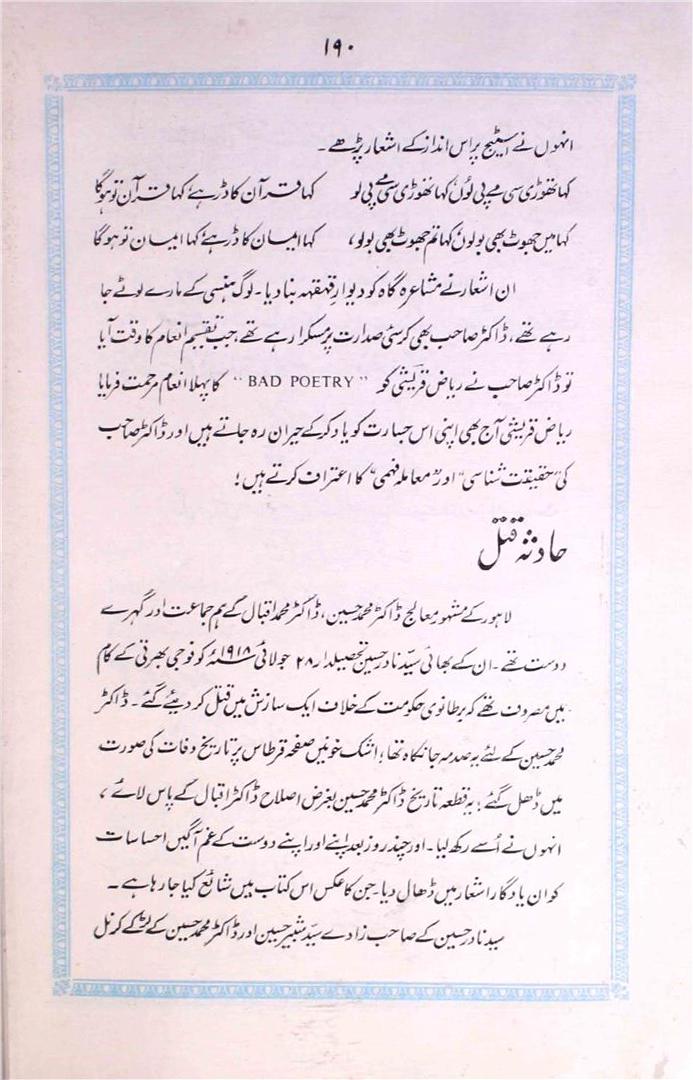 ۱۹۰
انہوں نے اسٹیج پر اس انداز کے اشعار پڑھے ۔
کہا تھوڑی سی مے پی لوُں کہا تھوڑی سی مے پی لو کہا قرآن کا ڈر ہے کہا قرآن تو ہوگا
کہا میں جھوٹ بھی بولوں کہا تم جھوٹ بھی بولو، کہا ایمان کا ڈر ہے کہا ایمان تو ہوگا
ان اشعار نے مشاعرہ گاہ کو دیوارِ قہقہہ بنا دیا ۔ لوگ ہنسی کے مارے لوٹے جا
رہے تھے، ڈاکٹر صاحب بھی کرسئی صدارت پر مسکرا رہے تھے، جب تقسیم انعام کا وقت آیا
تو ڈاکٹر صاحب نے ریاض قریشی کو "BAD POETRY" کا پہلا انعام مرحمت فرمایا
ریاض قریشی آج بھی اپنی اس جسارت کو یاد کرکے حیران رہ جاتے ہیں اور ڈاکٹر صاحب
کی "حقیقت شناسی" اور "معاملہ فہمی" کا اعتراف کرتے ہیں !
حادثہ قتل
لاہور کے مشہور معالج ڈاکٹر محمد حسین، ڈاکٹر محمد اقبال کے ہم جماعت اور گہرے
دوست تھے ۔ ان کے بھائی سیّد نادر حسین تحصیلدار ۲۸ جولائی ۱۹۱۸ء کو فوجی بھرتی کے کام
میں مصروف تھے کہ برطانوی حکومت کے خلاف ایک سازش میں قتل کر دیئے گئے ۔ ڈاکٹر
محمد حسین کے لئے یہ صدمہ جانکاہ تھا ؛ اشک خونیں صفحہ قرطاس پر تاریخ وفات کی صورت
میں ڈھل گئے ؛ یہ قطعہ تاریخ ڈاکٹر محمد حسین بغرض اصلاح ڈاکٹر اقبال کے پاس لائے ،
انہوں نے اُسے رکھ لیا ۔ اور چند روز بعد اپنے اور اپنے دوست کے غم آگیں احساسات
کو ان یادگار اشعار میں ڈھال دیا ۔ جن کا عکس اس کتاب میں شائع کیا جا رہا ہے ۔
سید نادر حسین کے صاحب زادے سیّد شبیر حسین اور ڈاکٹر محمد حسین کے لڑکے کرنل